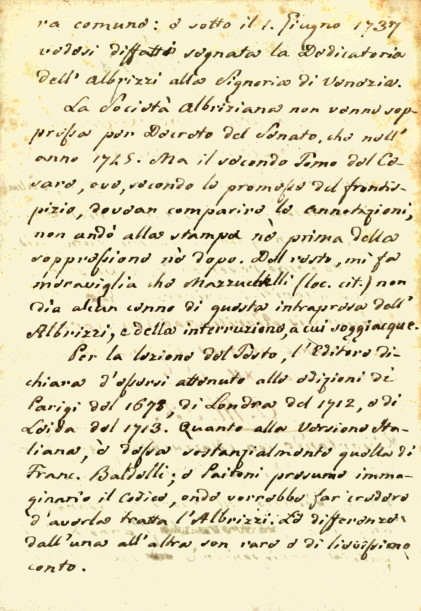 ra comune: e sotto il 1. Giugno 1737
vedesi diffatti segnata la Dedicatoria
dell'Albrizzi alla Signoria di Venezia.
La Società Albriziana non venne sop-
pressa per Decreto del Senato, che nell'
anno 1745. Ma il secondo Tomo del Ce-
sare, ove, secondo le promesse del frontis-
pizio, dovean comparire le Annotazioni,
non andò alla stampa nè prima della
soppressione nè dopo. Del resto, mi fa
meraviglia che Mazzuchelli (loc. cit.) non
dia alcun cenno di questa intrapresa dell'
Albrizzi, e della interruzione, a cui soggiacque.
Per la lezione del Testo, l'Editore di-
chiara d'essersi attenuto alle edizioni di
Parigi del 1678, di Londra del 1712, e di
Leida del 1713. Quanto alla Versione Ita-
liana, è dessa sostanzialmente quella di
Franc. Baldelli; e Paitoni presume imma-
ginario il Codice, onde vorrebbe far credere
d'averla tratta l'Albrizzi. Le differenze
dall'una all'altra son rare e di lievissimo
conto.